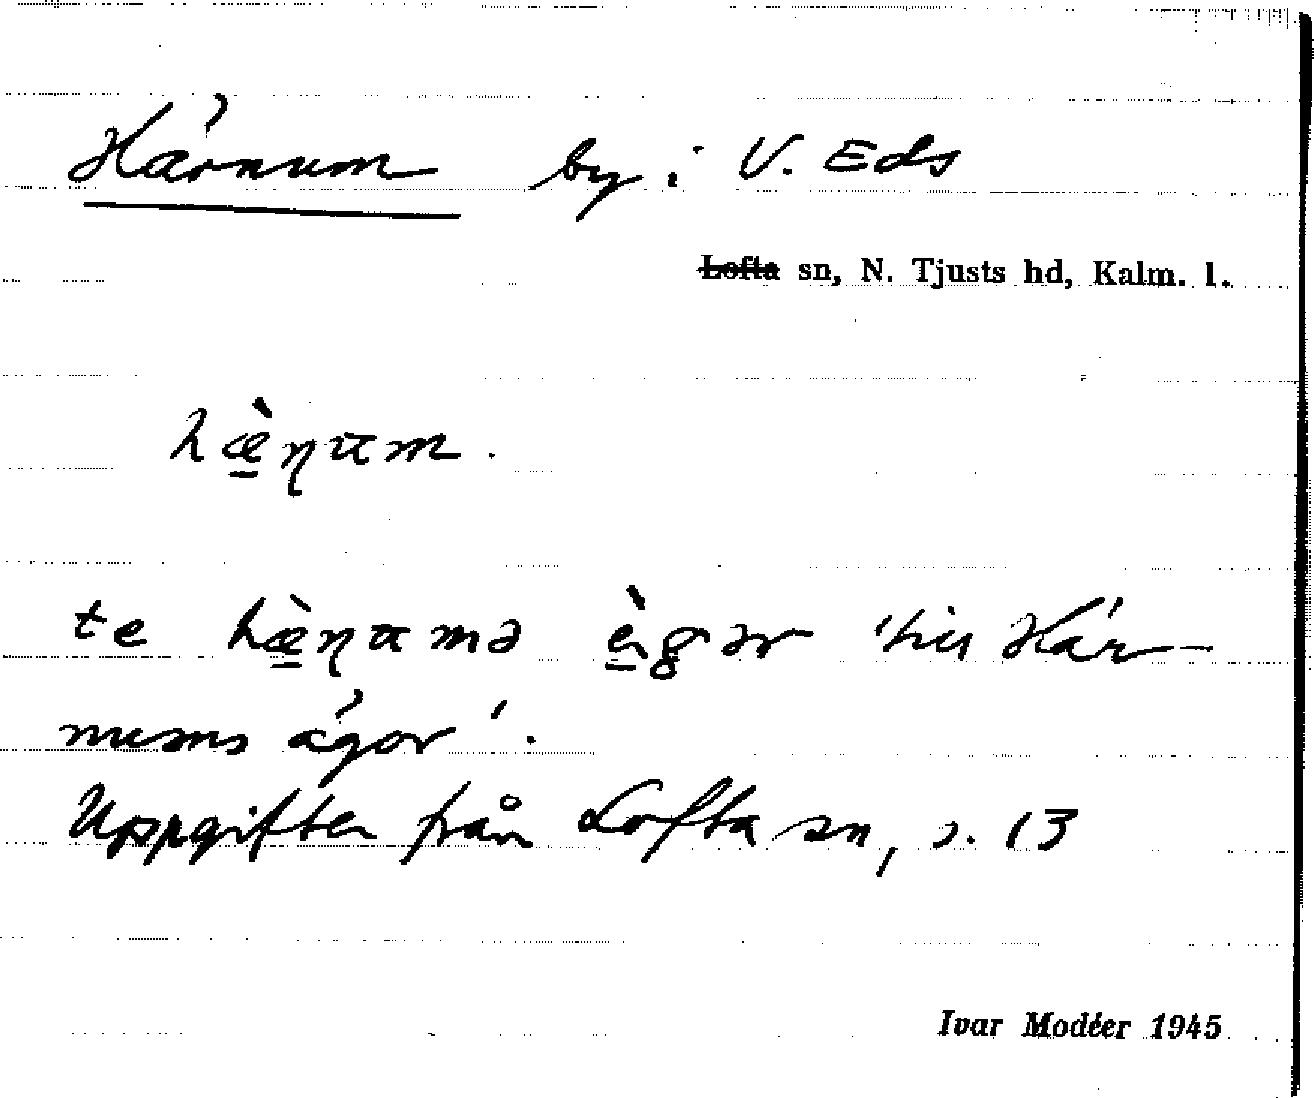 Härnum by i V. Eds
Lofta sn, N. Tjusts hd, Kalm. l.
hæ̀ɳum.
te hæ̀ɳumə è̱gər 'till Här-
nums ägor'.
Uppgiften från Lofta sn, s. 13
Ivar Modéer 1945